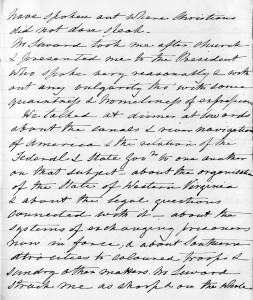 have spoken out where Christians
did not dare speak.
Mr Seward took me after church
& presented me to the President
who spoke very reasonably & with
out any vulgarity tho' with some
quaintness & homeliness of expression
He talked at dinner at Sewards
about the canals & river navigation
of America & the relation of the
Federal & State Govts to one another
on that subject - about the organisation
of the State of Western Virginia
& about the legal questions
connected with it - about the
systems of exchanging prisoners
now in force, & about Southern
atrocities to coloured troops &
sundry other matters. Mr Seward
struck me as sharp & on the whole